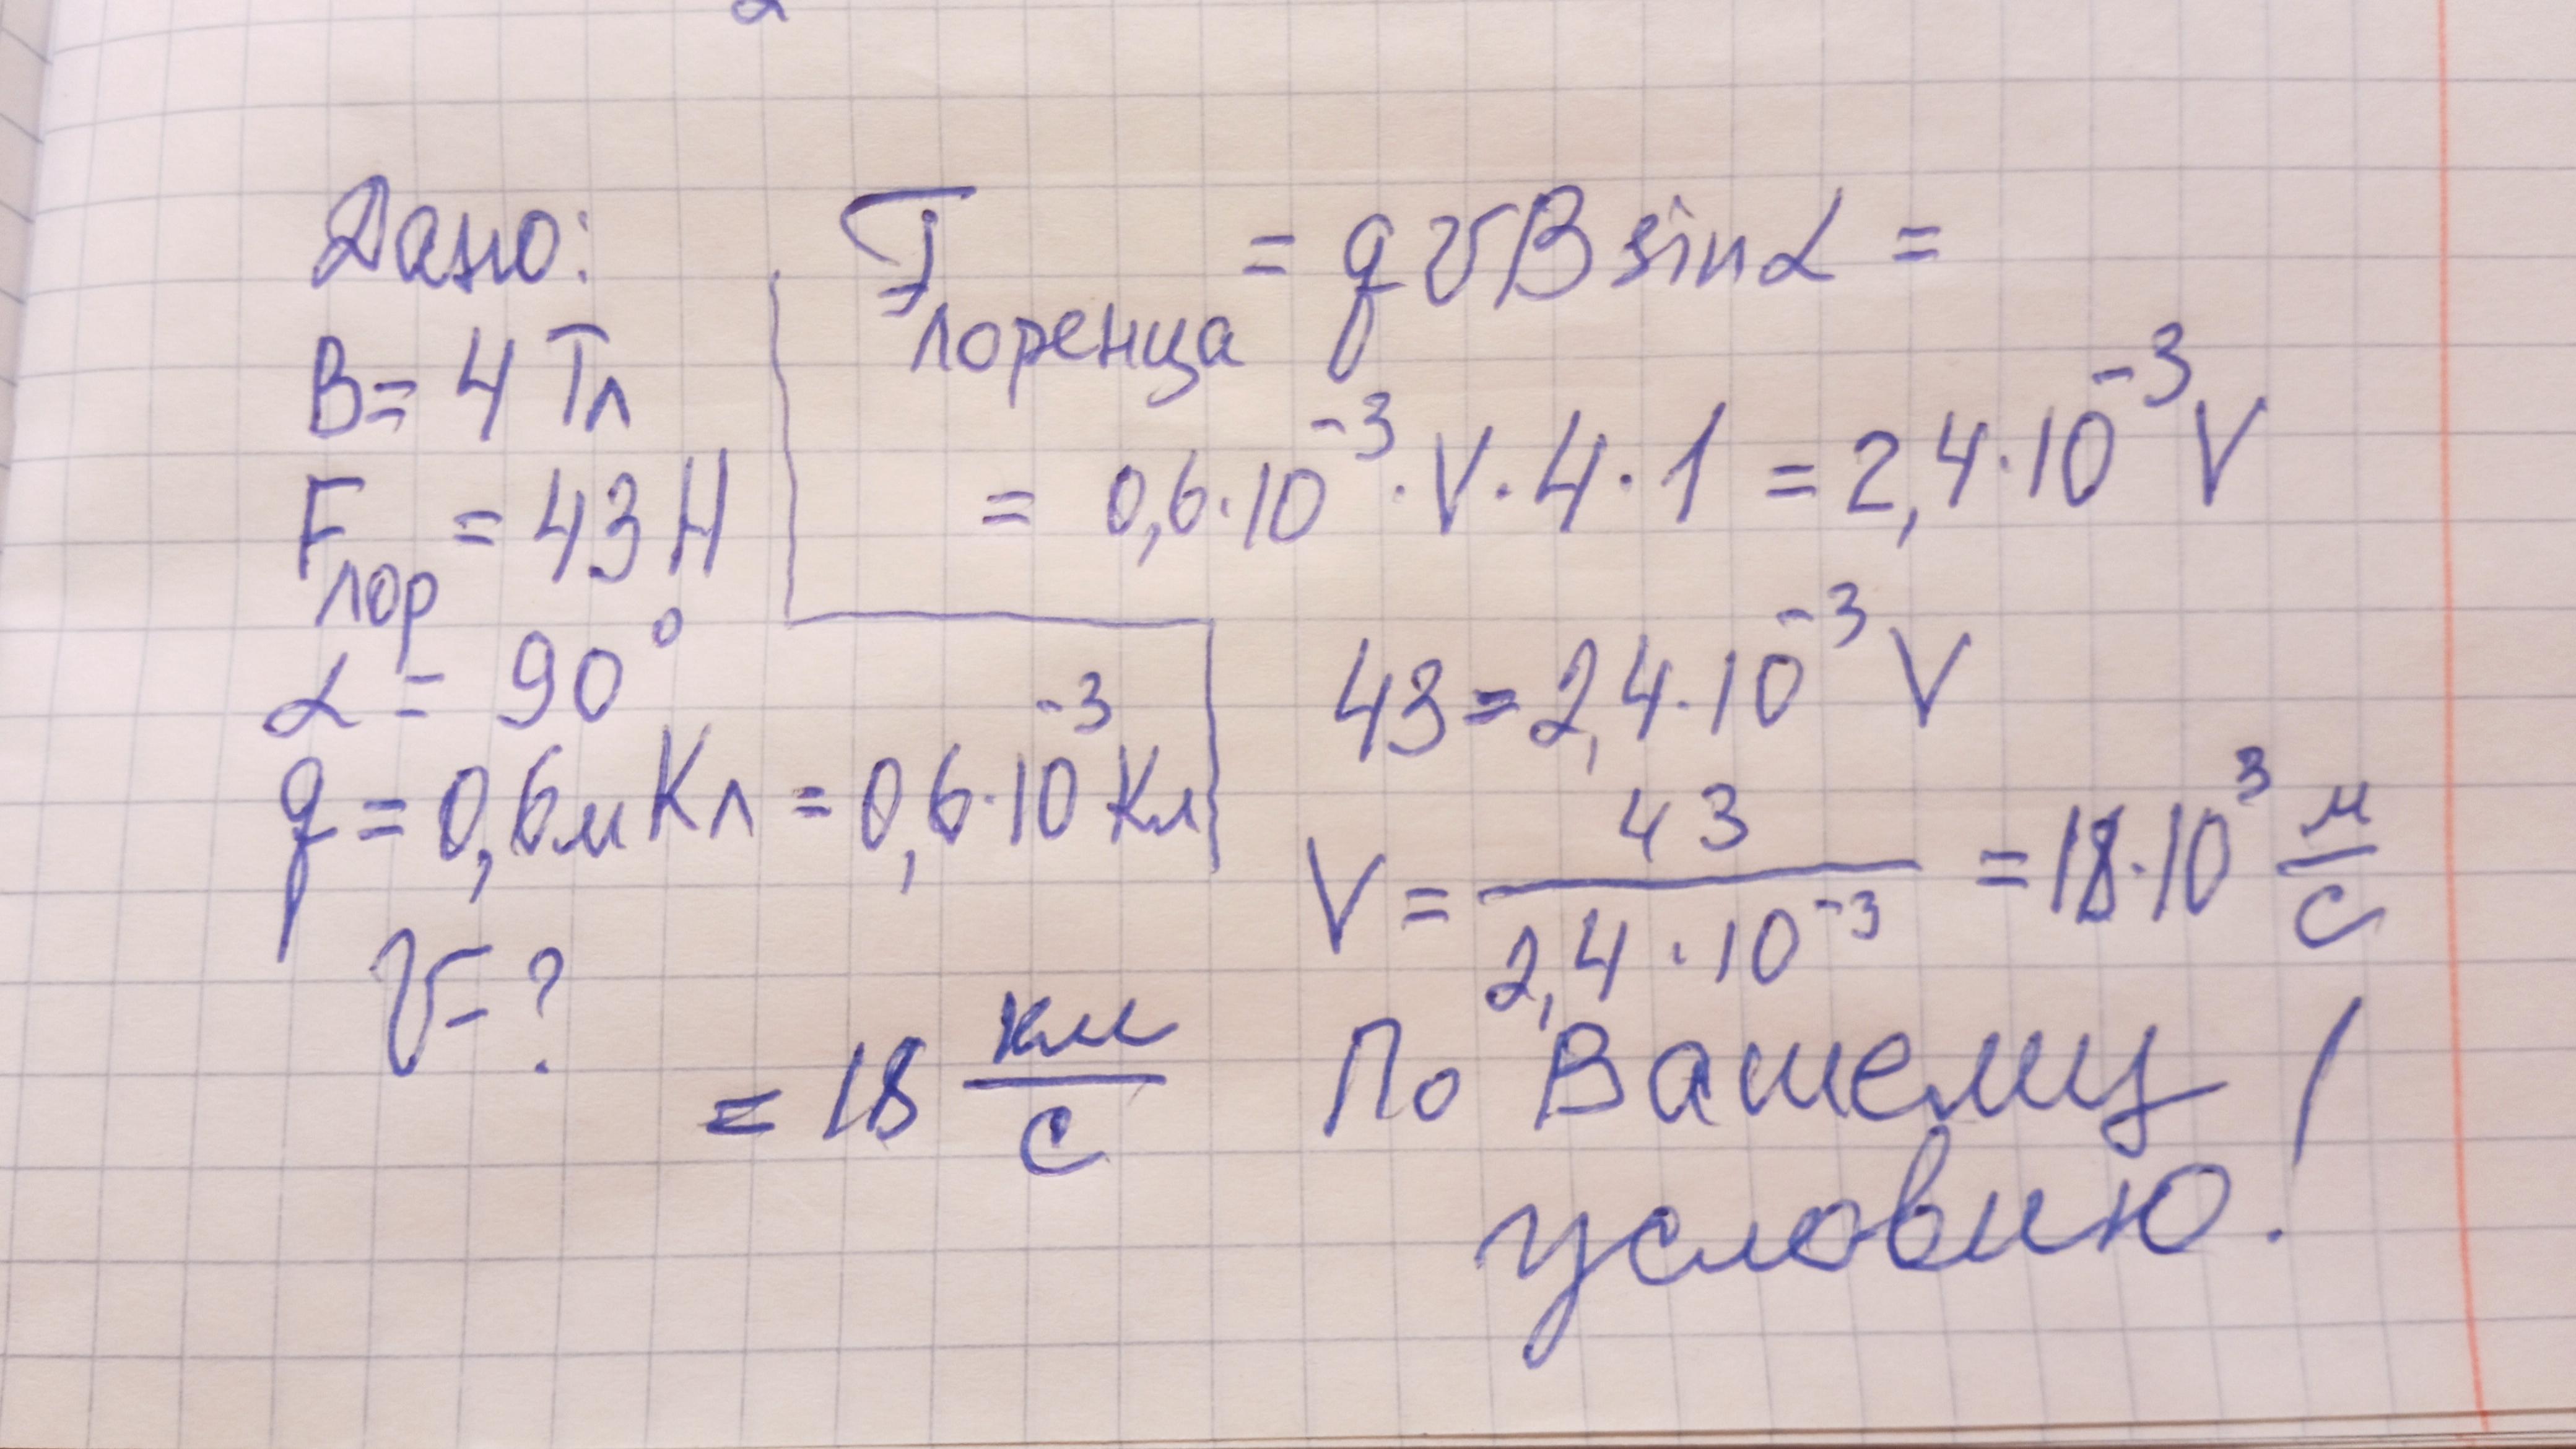 Дано:
B = 4 Тл
Fлор = 43 Н
α = 90°
q = 0,6 мКл = 0,6·10⁻³ Кл
υ - ?
Fлоренца = qυB sinα =
= 0,6·10⁻³·V·4·1 = 2,4·10⁻³ V
43 = 2,4·10⁻³ V
V = 43 / 2,4·10⁻³ = 18·10³ м/с
= 18 км/с
По Вашему
условию!